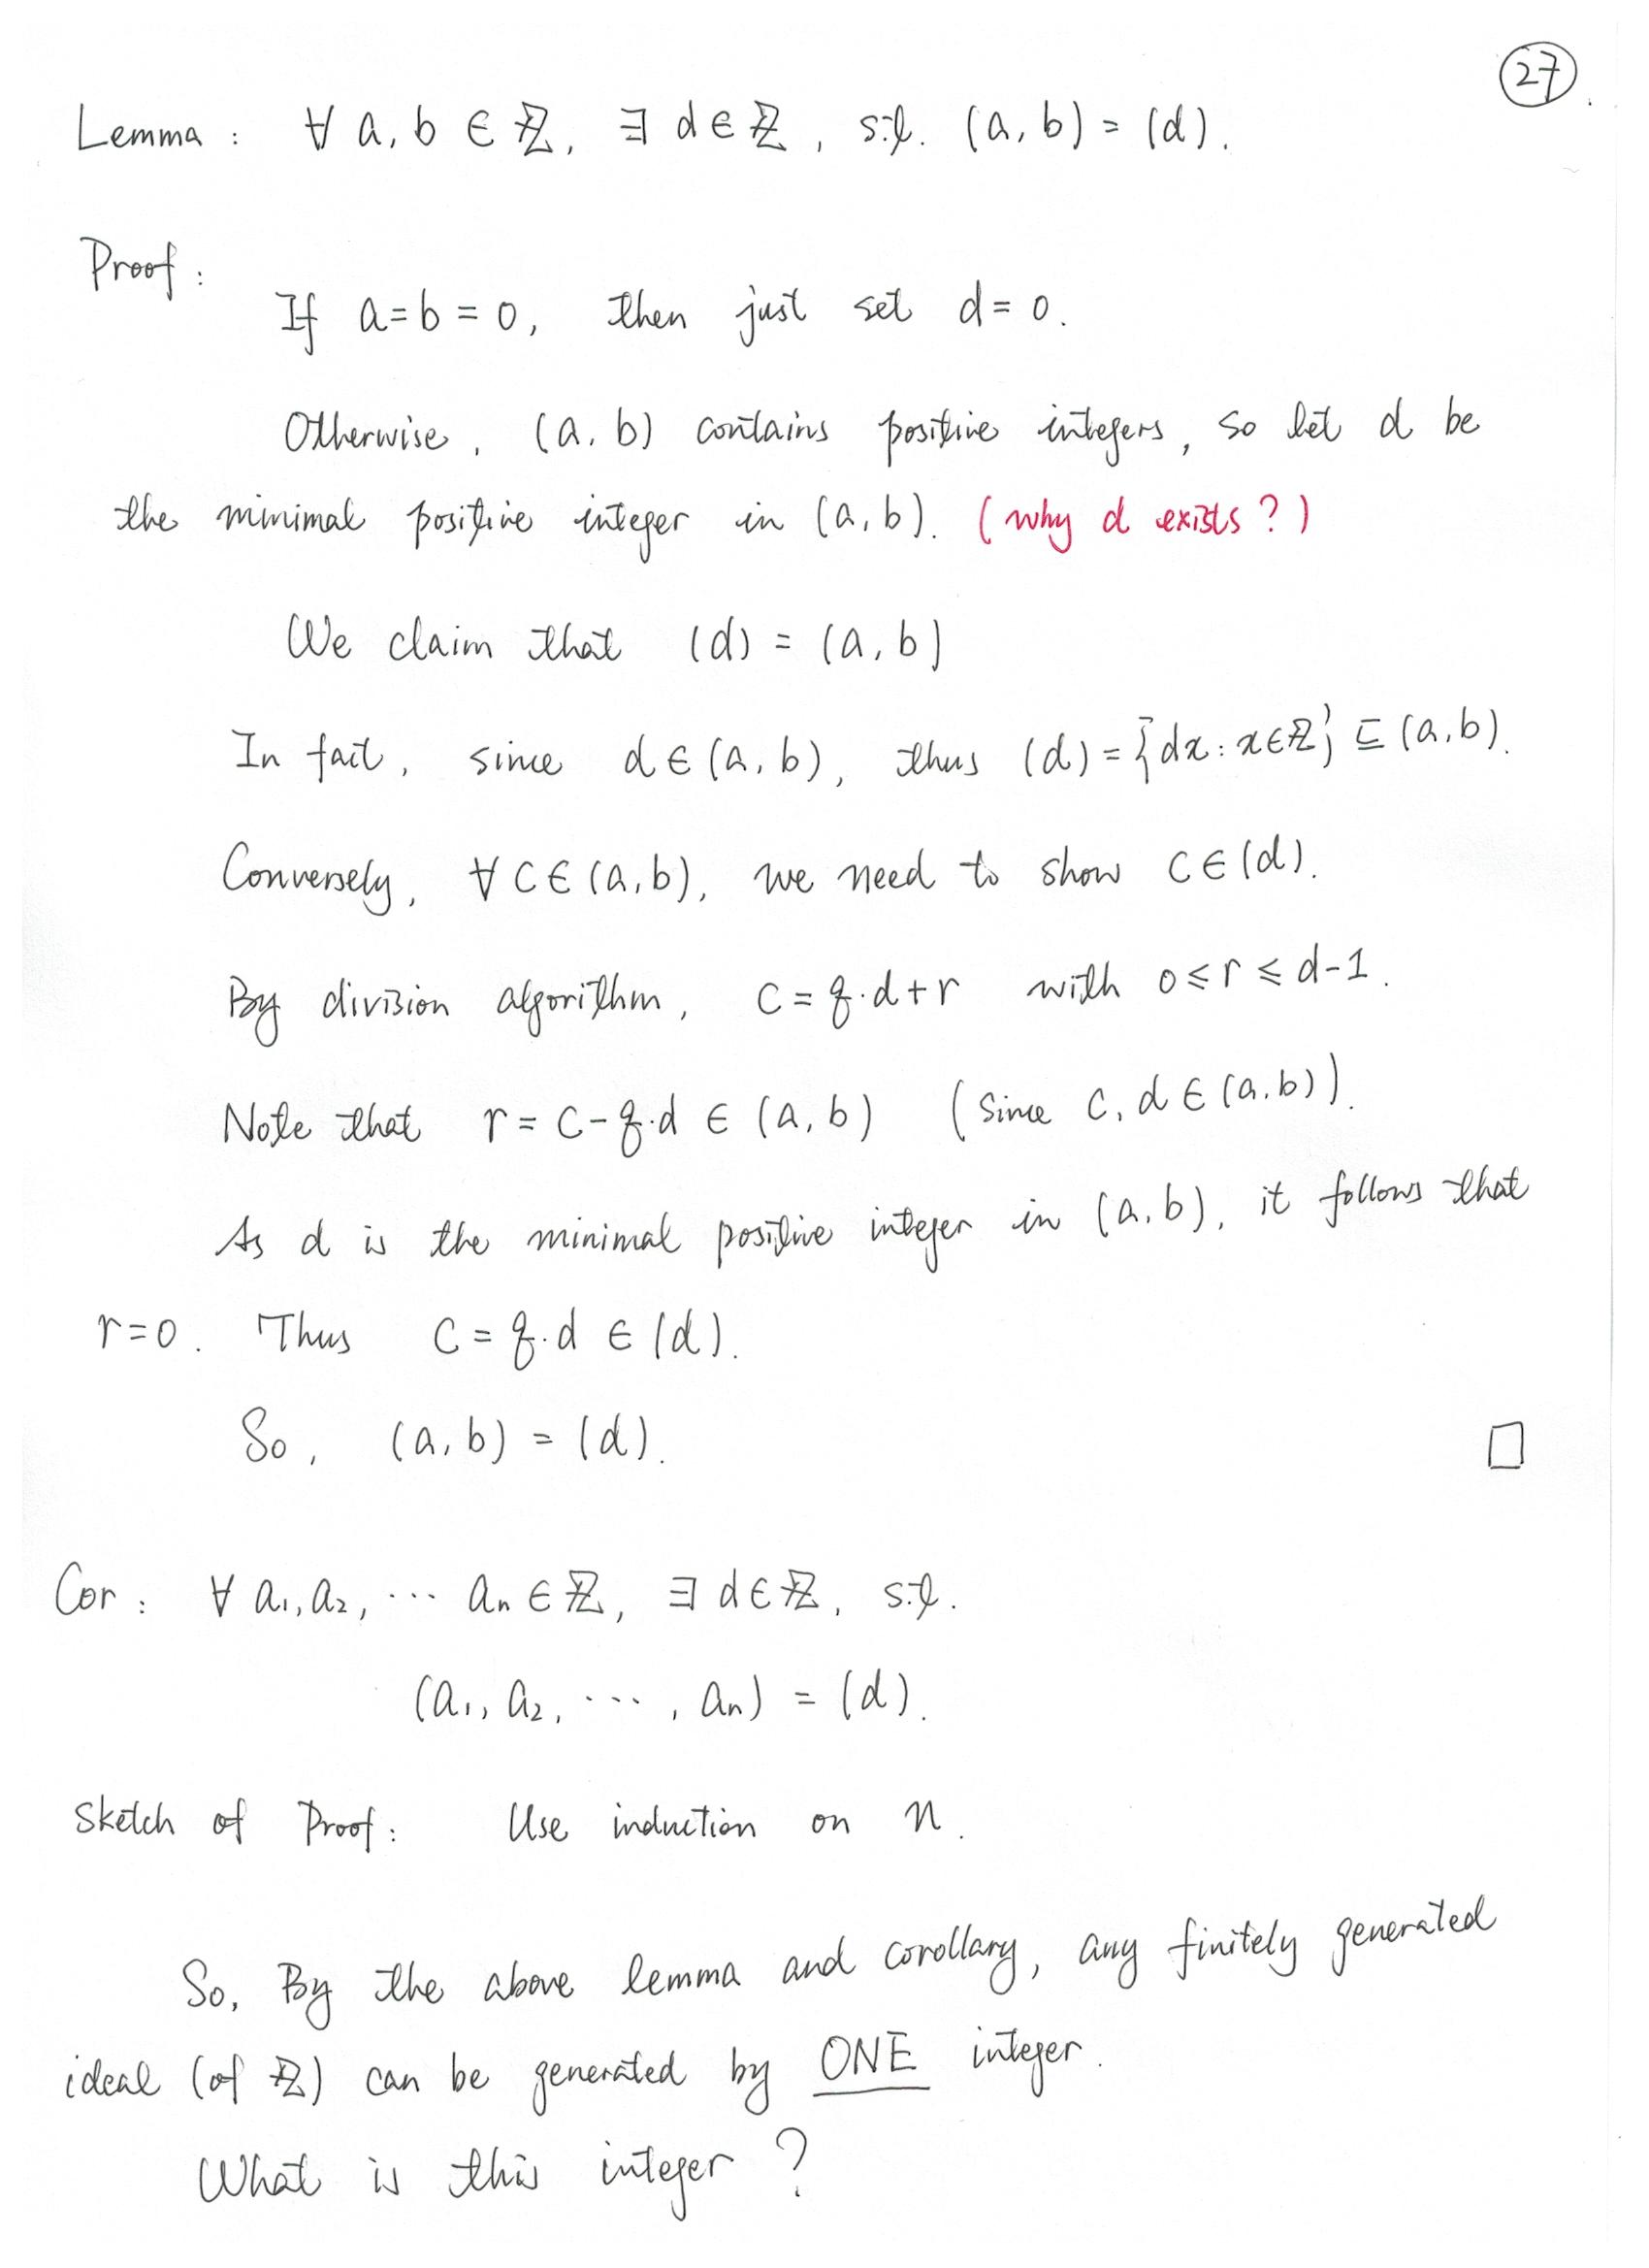 27
Lemma : ∀ a, b ∈ ℤ, ∃ d ∈ ℤ, s.t. (a, b) = (d).
Proof :
If a = b = 0, then just set d = 0.
Otherwise, (a, b) contains positive integers, so let d be
the minimal positive integer in (a, b). (why d exists?)
We claim that (d) = (a, b)
In fact, since d ∈ (a, b), thus (d) = {dx : x ∈ ℤ} ⊆ (a, b).
Conversely, ∀ c ∈ (a, b), we need to show c ∈ (d).
By division algorithm, c = q·d + r with 0 ≤ r ≤ d-1.
Note that r = c - q·d ∈ (a, b) (since c, d ∈ (a, b)).
As d is the minimal positive integer in (a, b), it follows that
r = 0. Thus c = q·d ∈ (d).
So, (a, b) = (d). □
Cor : ∀ a₁, a₂, ⋯ aₙ ∈ ℤ, ∃ d ∈ ℤ, s.t.
(a₁, a₂, ⋯, aₙ) = (d).
Sketch of Proof : Use induction on n.
So, By the above lemma and corollary, any finitely generated
ideal (of ℤ) can be generated by ONE integer.
What is this integer ?